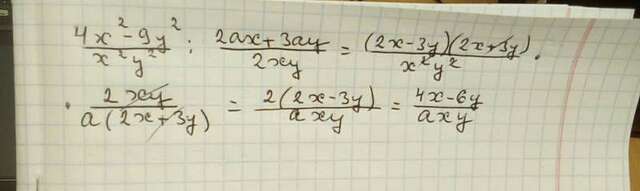 (4x² - 9y²)/(x²y²) : (2ax + 3ay)/(2xy) = ((2x - 3y)(2x + 3y))/(x²y²) ·
· (2xy)/(a(2x + 3y)) = (2(2x - 3y))/(axy) = (4x - 6y)/(axy)